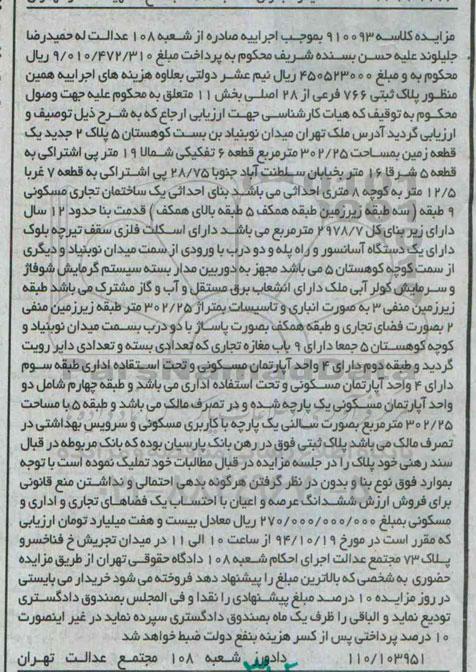 مزایده کلاسه ۹۱۰۰۹۳ بموجب اجراییه صادره از شعبه ۱۰۸ عدالت له حمیدرضا
جلیلوند علیه حسن بسنده شریف محکوم به پرداخت مبلغ ۹/۰۱۰/۴۷۲/۳۱۰ ریال
محکوم به و مبلغ ۴۵۰۵۲۳۰۰۰ ریال نیم عشر دولتی بعلاوه هزینه های اجراییه همین
منظور پلاک ثبتی ۷۶۶ فرعی از ۲۸ اصلی بخش ۱۱ متعلق به محکوم علیه جهت وصول
محکوم به توقیف که هیات کارشناسی جهت ارزیابی ارجاع که به شرح ذیل توصیف و
ارزیابی گردید آدرس ملک تهران میدان نوبنیاد بن بست کوهستان ۵ پلاک ۲ جدید یک
قطعه زمین بمساحت ۳۰۲/۲۵ مترمربع قطعه ۶ تفکیکی شمالا ۱۹ متر پی اشتراکی به
قطعه ۵ شرقا ۱۶ متر بخیابان سلطنت آباد جنوبا ۲۸/۷۵ پی اشتراکی به قطعه ۷ غربا
۱۲/۵ متر به کوچه ۸ متری احداثی می باشد بنای احداثی یک ساختمان تجاری مسکونی
۹ طبقه ( سه طبقه زیرزمین طبقه همکف ۵ طبقه بالای همکف ) قدمت بنا حدود ۱۲ سال
دارای زیر بنای کل ۲۹۷۸/۷ مترمربع می باشد دارای اسکلت فلزی سقف تیرچه بلوک
دارای یک دستگاه آسانسور و راه پله و دو درب با ورودی از سمت میدان نوبنیاد و دیگری
از سمت کوچه کوهستان ۵ می باشد مجهز به دوربین مدار بسته سیستم گرمایش شوفاژ
و سرمایش کولر آبی ملک دارای انشعاب برق مستقل و آب و گاز مشترک می باشد طبقه
زیرزمین منفی ۳ به صورت انباری و تاسیسات بمتراژ ۳۰۲/۲۵ متر طبقه زیرزمین منفی
۲ بصورت فضای تجاری و طبقه همکف بصورت پاساژ با دو درب بسمت میدان نوبنیاد و
کوچه کوهستان ۵ جمعا دارای ۹ باب مغازه تجاری که تعدادی بسته و تعدادی دایر رویت
گردید و طبقه دوم دارای ۴ واحد آپارتمان مسکونی و تحت استفاده اداری طبقه سوم
دارای ۴ واحد آپارتمان مسکونی و تحت استفاده اداری می باشد و طبقه چهارم شامل دو
واحد آپارتمان مسکونی یک پارچه شده و در تصرف مالک می باشد و طبقه ۵ با مساحت
۳۰۲/۲۵ مترمربع بصورت سالنی یک پارچه با کاربری مسکونی و سرویس بهداشتی در
تصرف مالک می باشد پلاک ثبتی فوق در رهن بانک پارسیان بوده که بانک مربوطه در قبال
سند رهنی خود پلاک را در جلسه مزایده در قبال مطالبات خود تملیک نموده است با توجه
بموارد فوق نوع بنا و بدون در نظر گرفتن هرگونه بدهی احتمالی و نداشتن منع قانونی
برای فروش ارزش ششدانگ عرصه و اعیان با احتساب یک فضاهای تجاری و اداری و
مسکونی بمبلغ ۲۷۰/۰۰۰/۰۰۰/۰۰۰ ریال معادل بیست و هفت میلیارد تومان ارزیابی
که مقرر است در مورخ ۹۴/۱۰/۱۹ از ساعت ۱۰ الی ۱۱ در میدان تجریش خ فناخسرو
پلاک ۷۳ مجتمع عدالت اجرای احکام شعبه ۱۰۸ دادگاه حقوقی تهران از طریق مزایده
حضوری به شخصی که بالاترین مبلغ را پیشنهاد دهد فروخته می شود خریدار می بایستی
در روز مزایده ۱۰ درصد مبلغ پیشنهادی را نقدا و فی المجلس بصندوق دادگستری
تودیع نماید و الباقی را ظرف یک ماه بصندوق دادگستری سپرده نماید در غیر اینصورت
۱۰ درصد پرداختی پس از کسر هزینه بنفع دولت ضبط خواهد شد
۱۱۰/۱۰۳۹۵۱ دادورز شعبه ۱۰۸ مجتمع عدالت تهران